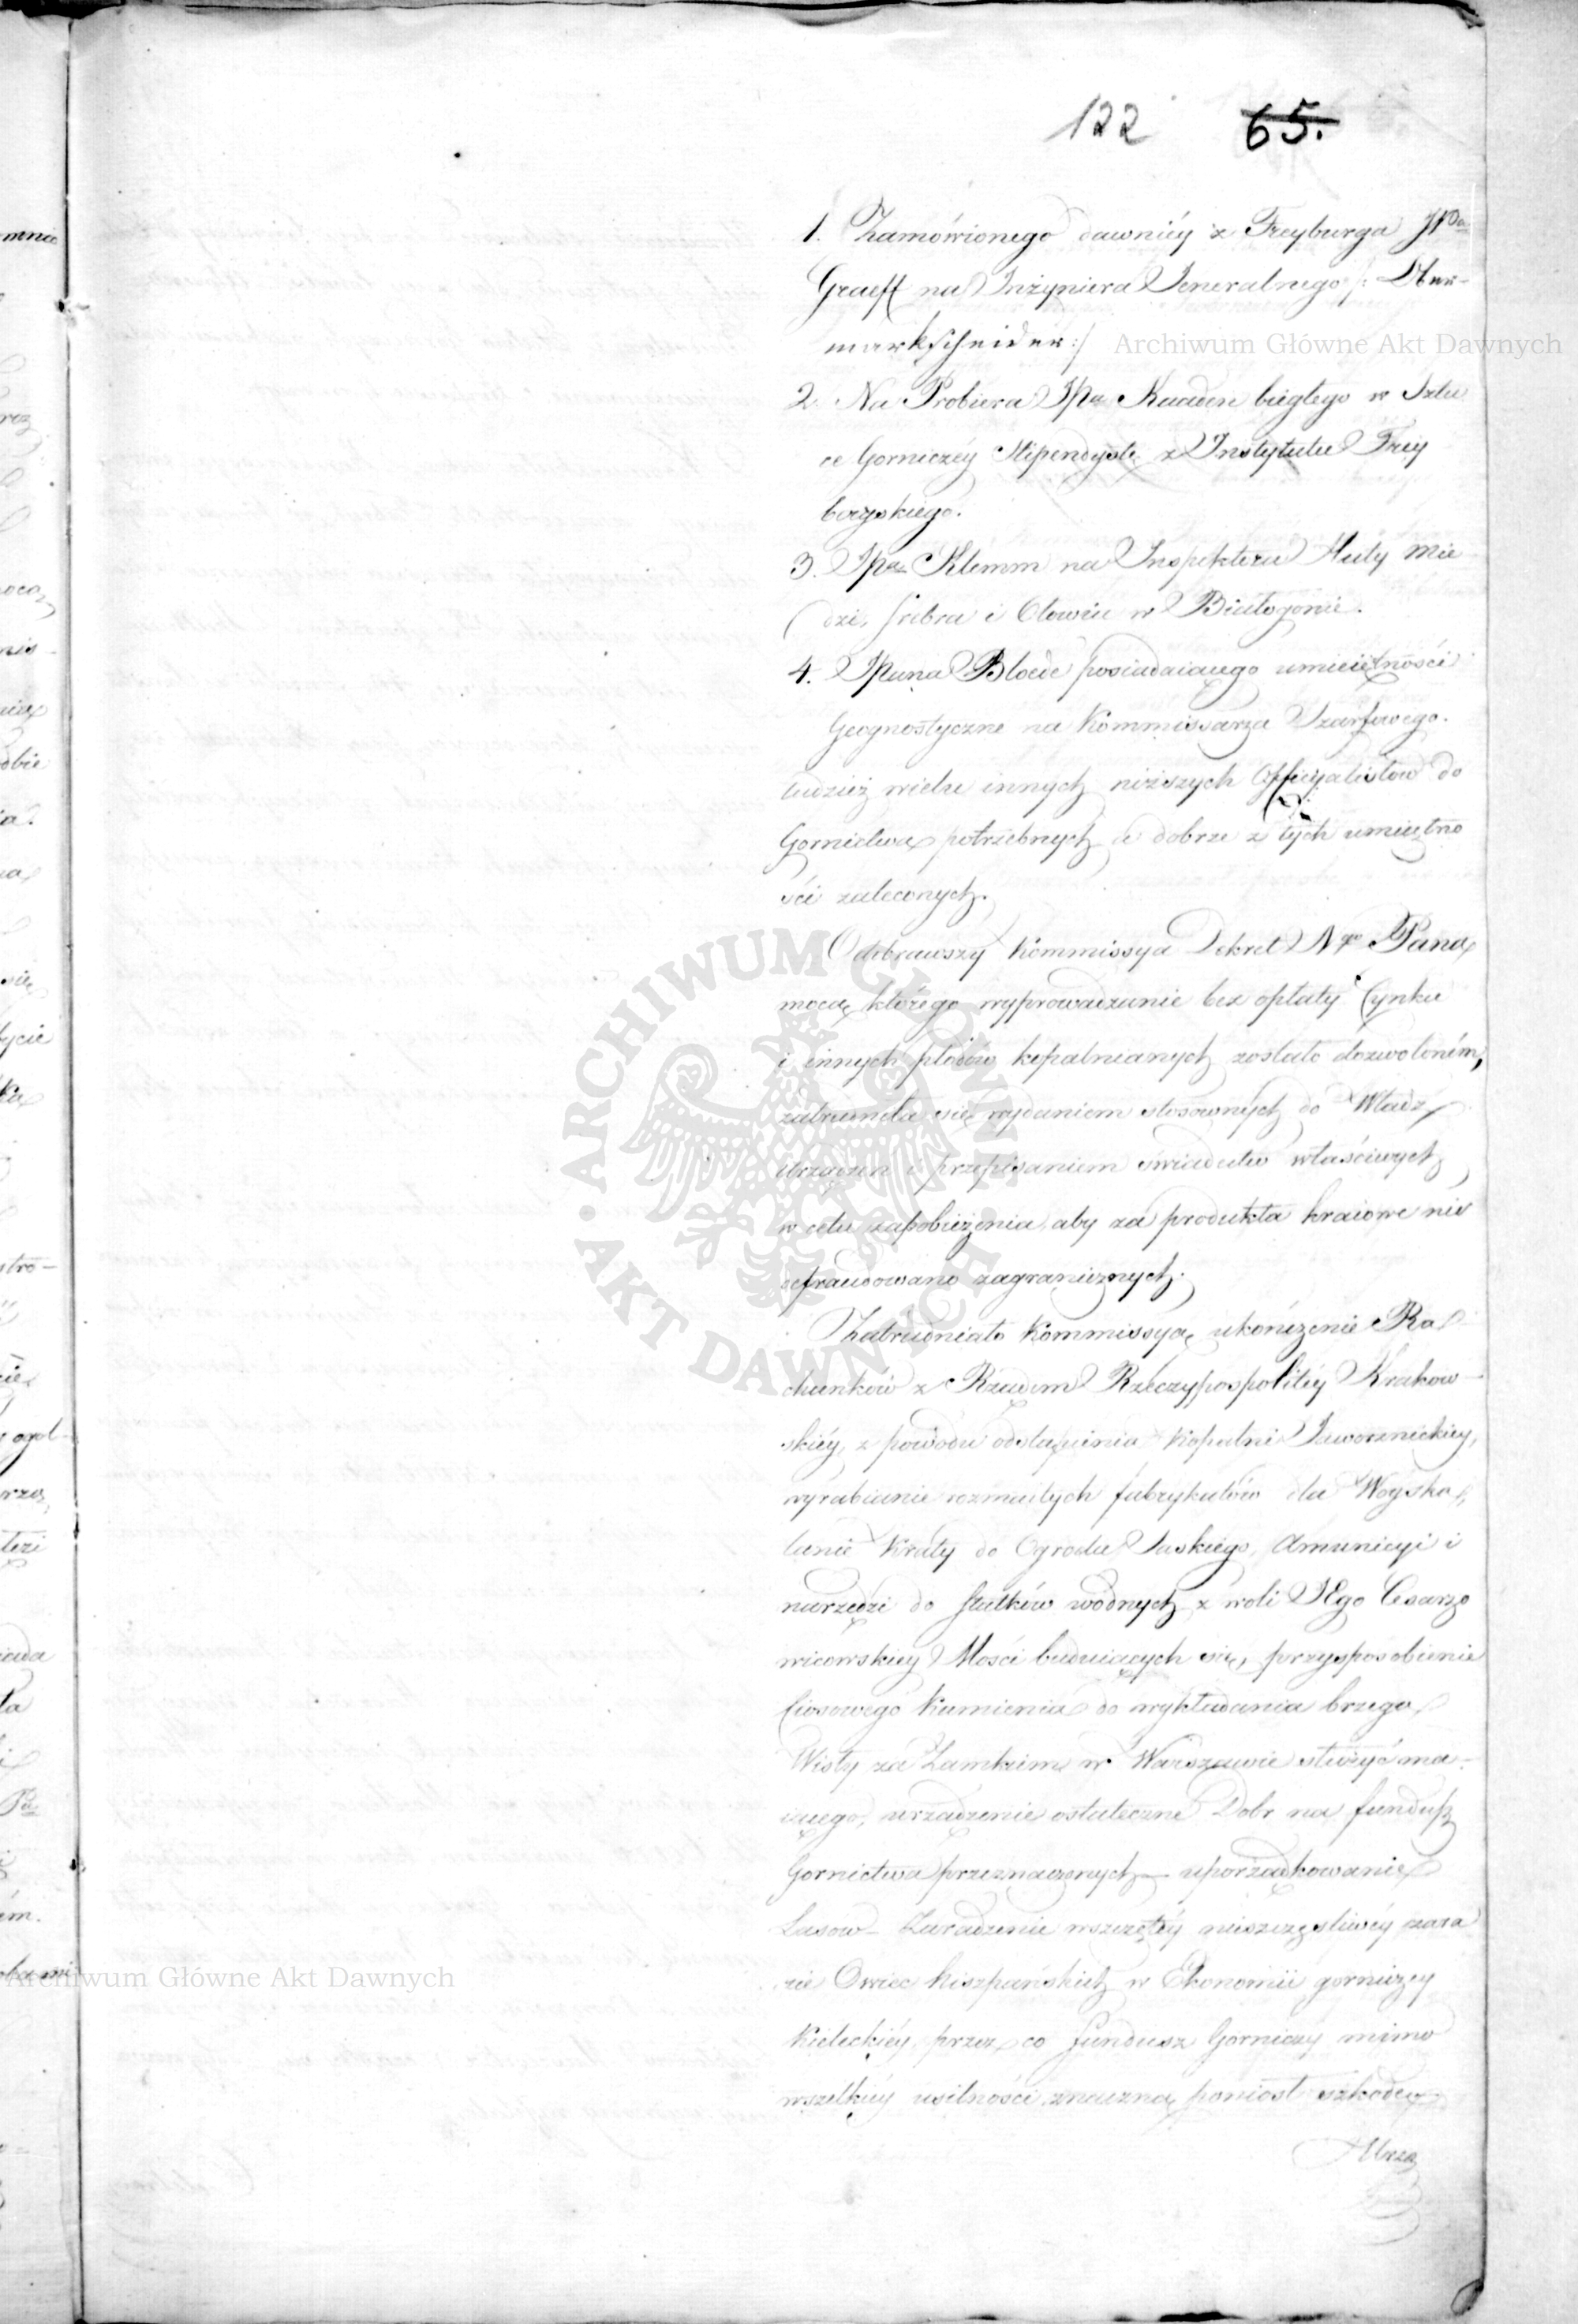 122 65.
1. Zamówionego dawniéy z Freyburga JPa
Graeff na Inżyniera Jeneralnego /: Ober-
markscheider :/
2. Na Probiera JPa Kaaden biegłego w Sztu
ce Gorniczéy Stipendystę z Instytutu Frey
bergskiego.
3. JPa Klemm na Inspektora Huty Mie
dzi, srebra i Ołowiu w Białogonie.
4. JPana Bloede posiadaiącego umieiętności
Geognostyczne na Kommissarza Szarfowego.
tudzież wielu innych niższych Officyalistow do
Gornictwa potrzebnych a dobrze z tych umieiętno
ści zaleconych.
Odebrawszy Kommissya Dekret Ngo Pana
mocą którego wyprowadzanie bez opłaty Cynku
i innych płodów kopalnianych zostało dozwoloném,
zatrudniła się wydaniem stosownych do Władz
urządzeń i przepisaniem świadectw właściwych,
w celu zapobieżenia, aby za produkta kraiowe nie
defraudowano zagranicznych.
Zatrudniało Kommissyą ukończenie Ra
chunków z Rządem Rzeczypospolitéy Krakow-
skiéy, z powodu odstąpienia Kopalni Jaworznickiey,
wyrabianie rozmaitych fabrykatów dla Woyska,
lanie Kraty do Ogrodu Saskiego, Amunicyi i
narzędzi do statków wodnych z woli JEgo Cesarzo
wicowskiey Mości buduiących się, przysposobienie
Ciosowego Kamienia do wykładania brzegu
Wisły za Zamkiem w Warszawie służyć ma-
iącego, urządzenie ostateczne Dobr na fundusz
Gornictwa przeznaczonych – uporządkowanie
Lasów – Zaradzenie wszczętéy nieszczęśliwéy zara
zie Owiec hiszpańskich w Ekonomii gorniczey
Kieleckiéy, przez co fundusz Gorniczy mimo
wszelkiéy usilności znaczną poniosł szkodę.
Urzą
Archiwum Główne Akt Dawnych
Archiwum Główne Akt Dawnych
ARCHIWUM GŁÓWNE AKT DAWNYCH